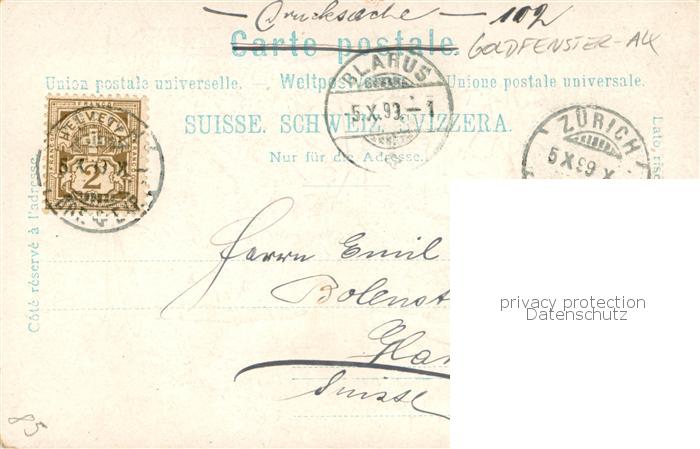 Drucksache — 102
Carte postale. GOLDFENSTER-AK
Union postale universelle. — Weltpostverein. — Unione postale universale.
SUISSE. SCHWEIZ. SVIZZERA.
Nur für die Adresse.
GLARUS
5.X.99.-1
ZÜRICH
5 X 99 X
HELVETIA
2
Côté réservé à l'adresse.
Lato rise
Herrn Emil
Suisse
85
privacy protection
Datenschutz